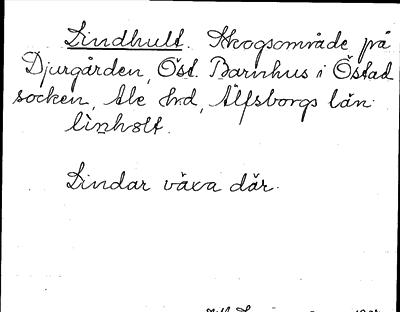 Lindhult. Skogsområde på
Djurgården, Öst. Barnhus i Östad
socken, Ale hrd, Älfsborgs län.
linhölt.
Lindar växa där.